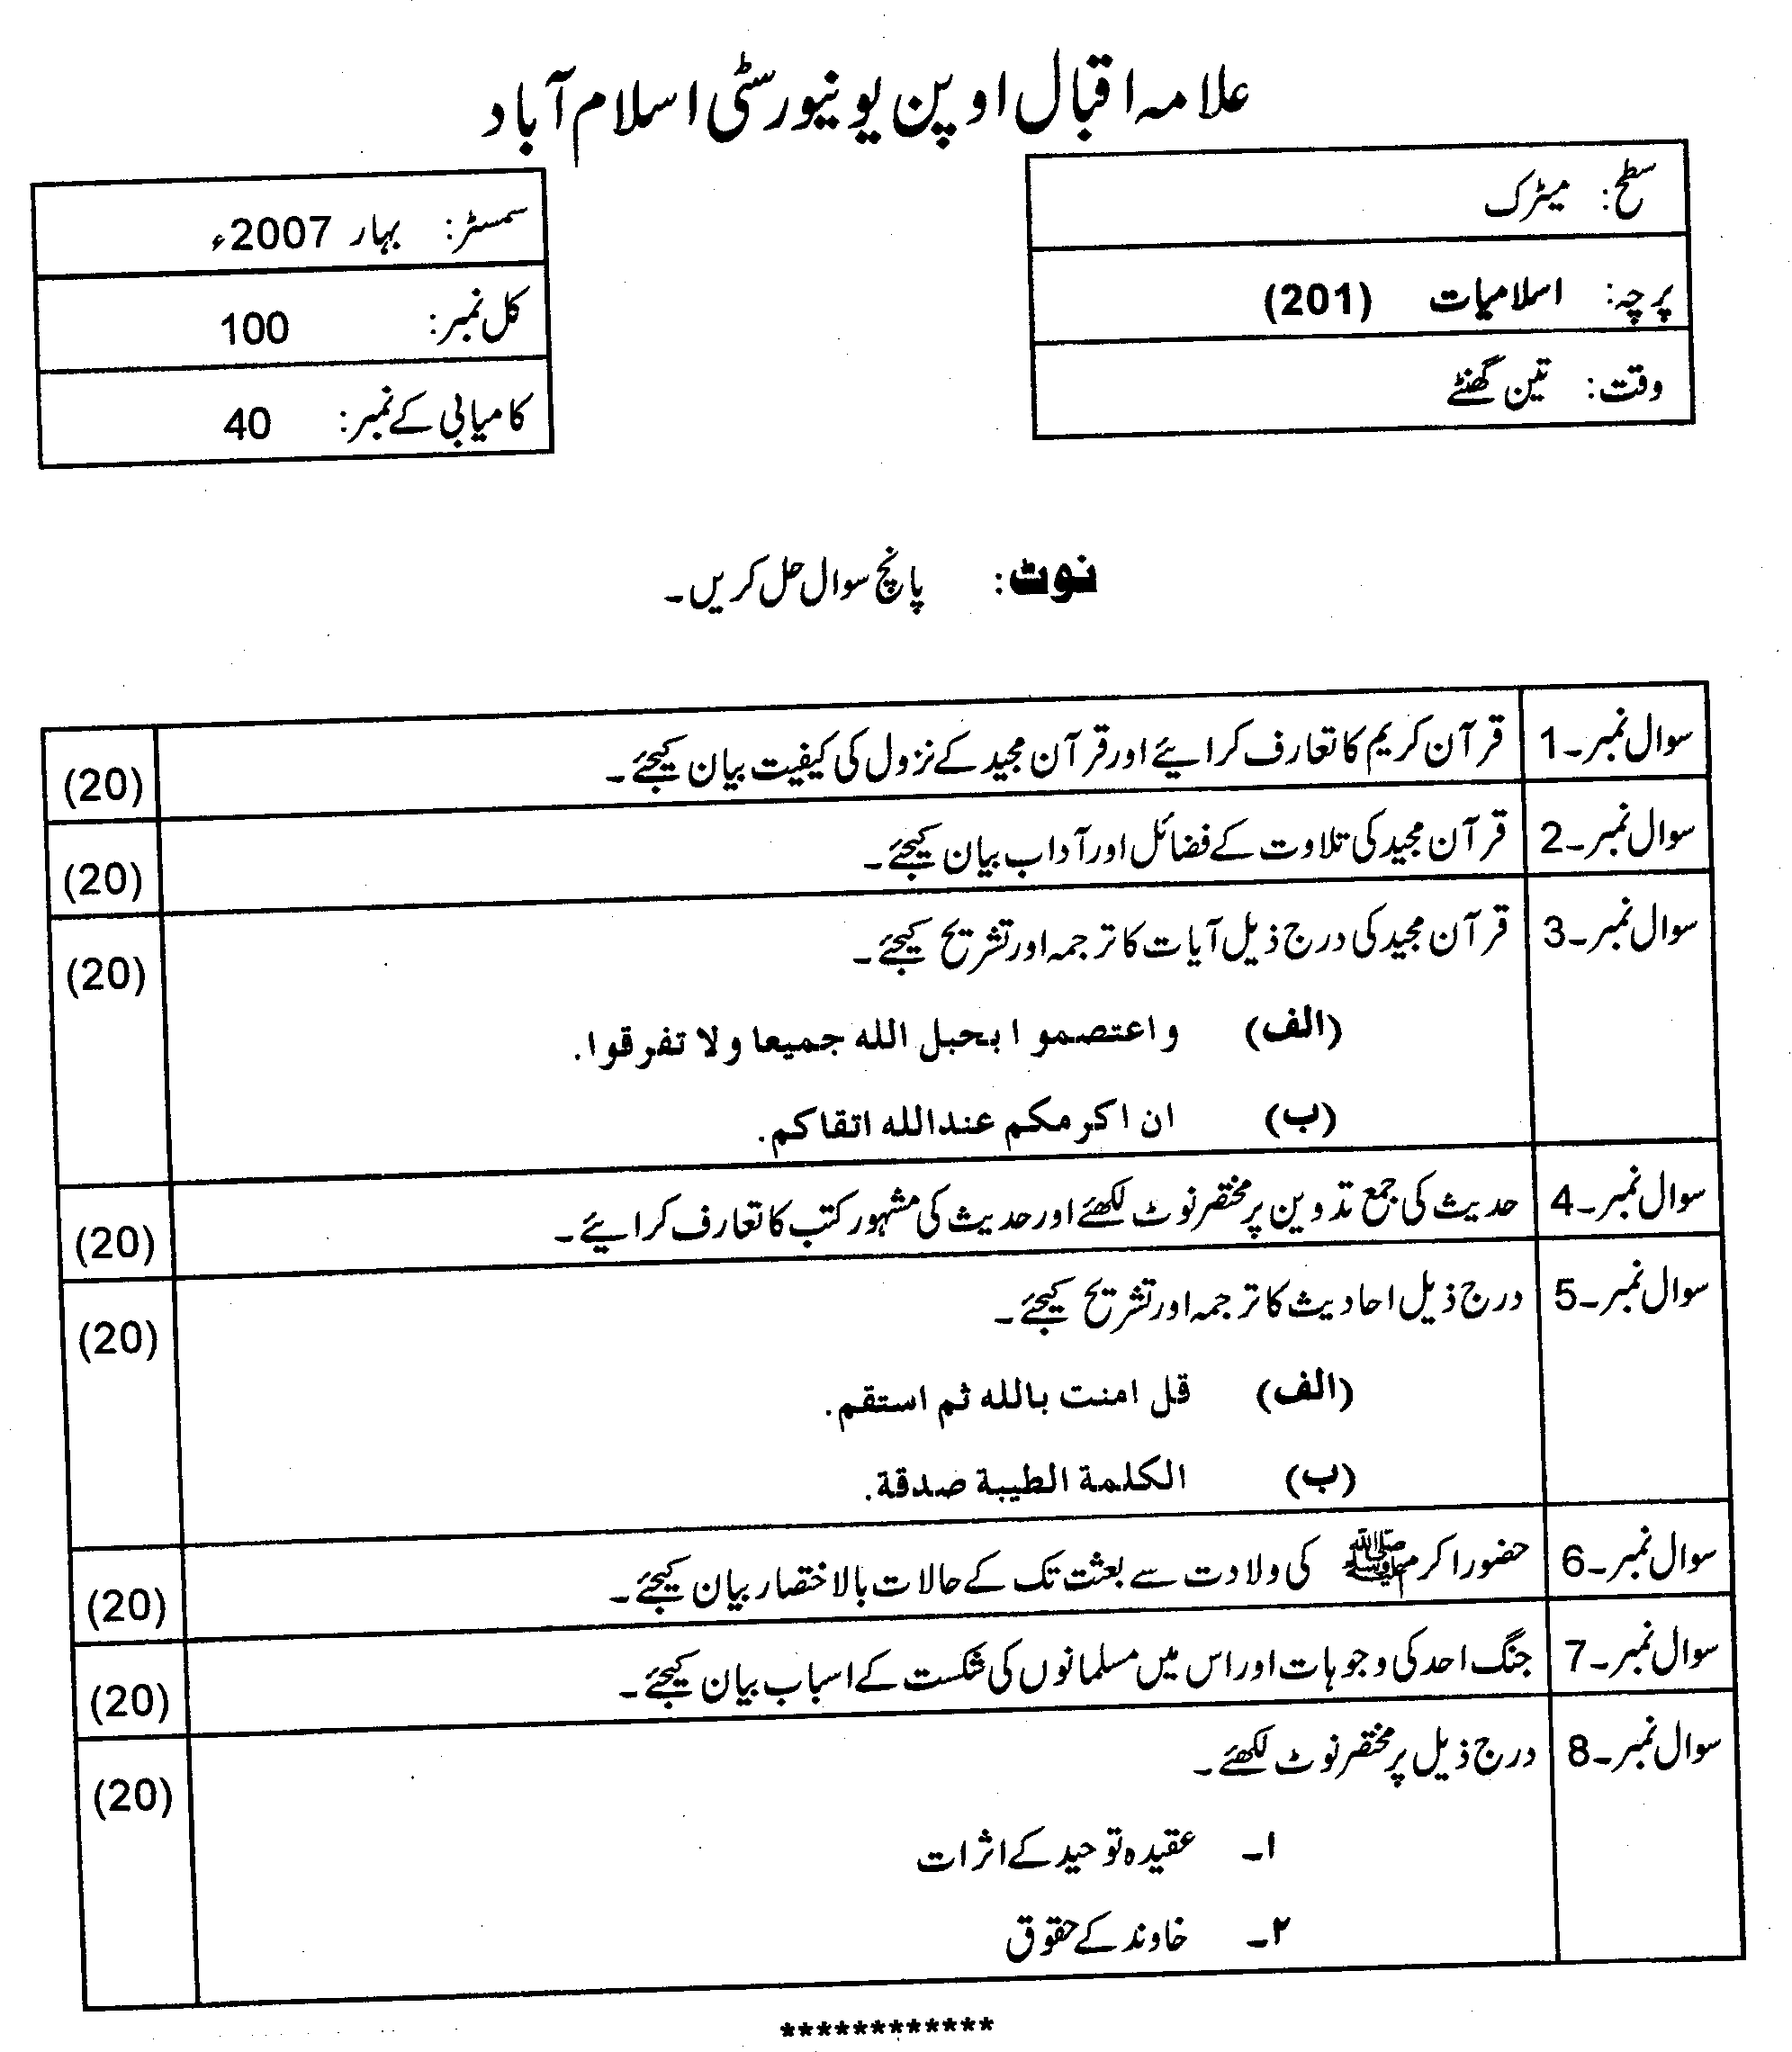 علامہ اقبال اوپن یونیورسٹی اسلام آباد
سطح: میٹرک
پرچہ: اسلامیات (201)
وقت: تین گھنٹے
سمسٹر: بہار 2007ء
کل نمبر: 100
کامیابی کے نمبر: 40
نوٹ: پانچ سوال حل کریں۔
سوال نمبر۔1 قرآن کریم کا تعارف کرائیے اور قرآن مجید کے نزول کی کیفیت بیان کیجئے۔ (20)
سوال نمبر۔2 قرآن مجید کی تلاوت کے فضائل اور آداب بیان کیجئے۔ (20)
سوال نمبر۔3 قرآن مجید کی درج ذیل آیات کا ترجمہ اور تشریح کیجئے۔ (20)
(الف) واعتصموا بحبل الله جميعا ولا تفرقوا.
(ب) ان اكرمكم عندالله اتقاكم.
سوال نمبر۔4 حدیث کی جمع تدوین پر مختصر نوٹ لکھئے اور حدیث کی مشہور کتب کا تعارف کرائیے۔ (20)
سوال نمبر۔5 درج ذیل احادیث کا ترجمہ اور تشریح کیجئے۔ (20)
(الف) قل امنت بالله ثم استقم.
(ب) الكلمة الطيبة صدقة.
سوال نمبر۔6 حضور اکرم ﷺ کی ولادت سے بعثت تک کے حالات بالاختصار بیان کیجئے۔ (20)
سوال نمبر۔7 جنگ احد کی وجوہات اور اس میں مسلمانوں کی شکست کے اسباب بیان کیجئے۔ (20)
سوال نمبر۔8 درج ذیل پر مختصر نوٹ لکھئے۔ (20)
۱۔ عقیدہ توحید کے اثرات
۲۔ خاوند کے حقوق
************